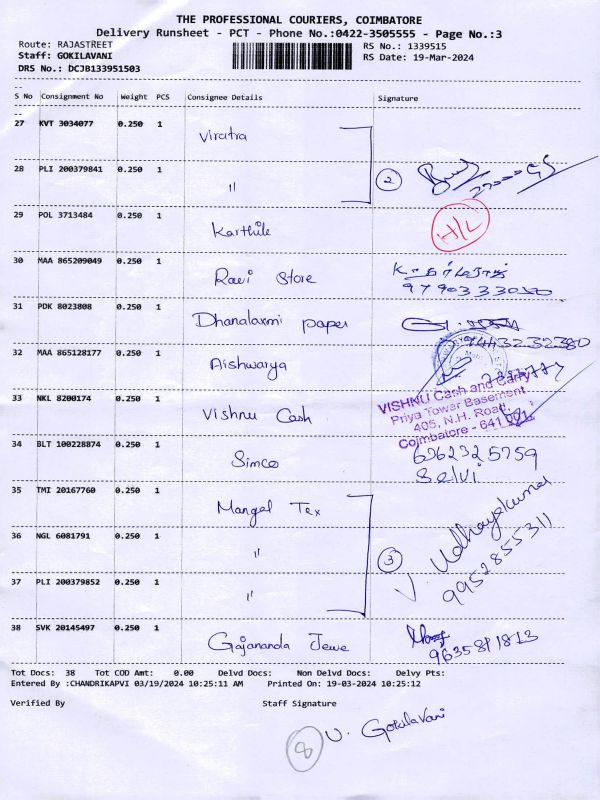 THE PROFESSIONAL COURIERS, COIMBATORE
Delivery Runsheet - PCT - Phone No.:0422-3505555 - Page No.:3
Route: RAJASTREET
RS No.: 1339515
Staff: GOKILAVANI
RS Date: 19-Mar-2024
DRS No.: DCJB133951503
S No Consignment No Weight PCS Consignee Details Signature
27 KVT 3034077 0.250 1 Viratra
28 PLI 200379841 0.250 1 " 2
29 POL 3713484 0.250 1 Karthik H/L
30 MAA 865209049 0.250 1 Ravi Store
31 PDK 8023808 0.250 1 Dhanalaxmi paper
9443232380
32 MAA 865128177 0.250 1 Aishwarya
33 NKL 8200174 0.250 1 Vishnu Cash
VISHNU Cash and Carry
Priya Tower Basement
405, N.H. Road,
Coimbatore - 641 001
34 BLT 100228874 0.250 1 Simco
Selvi
35 TMI 20167760 0.250 1 Mangal Tex
36 NGL 6081791 0.250 1 " 3
V. Udhayakumar
9952855311
37 PLI 200379852 0.250 1 "
38 SVK 20145497 0.250 1 Gajananda Jewe
Tot Docs: 38 Tot COD Amt: 0.00 Delvd Docs: Non Delvd Docs: Delvy Pts:
Entered By :CHANDRIKAPVI 03/19/2024 10:25:11 AM Printed On: 19-03-2024 10:25:12
Verified By Staff Signature
8 U. Gokilavani